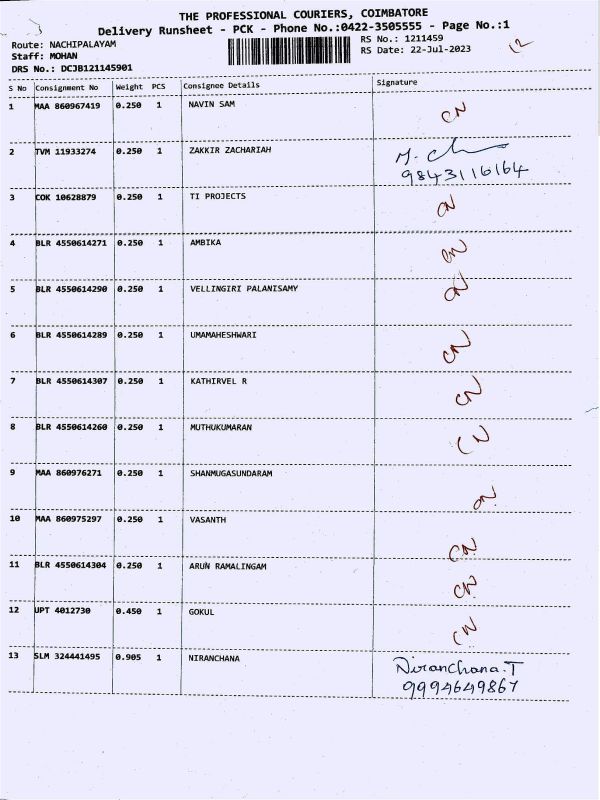 THE PROFESSIONAL COURIERS, COIMBATORE
Delivery Runsheet - PCK - Phone No.:0422-3505555 - Page No.:1
Route: NACHIPALAYAM
Staff: MOHAN
DRS No.: DCJB121145901
RS No.: 1211459
RS Date: 22-Jul-2023
12
S No Consignment No Weight PCS Consignee Details Signature
1 MAA 860967419 0.250 1 NAVIN SAM CN
2 TVM 11933274 0.250 1 ZAKKIR ZACHARIAH
9843116164
3 COK 10628879 0.250 1 TI PROJECTS CN
4 BLR 4550614271 0.250 1 AMBIKA CN
5 BLR 4550614290 0.250 1 VELLINGIRI PALANISAMY CN
6 BLR 4550614289 0.250 1 UMAMAHESHWARI CN
7 BLR 4550614307 0.250 1 KATHIRVEL R CN
8 BLR 4550614260 0.250 1 MUTHUKUMARAN CN
9 MAA 860976271 0.250 1 SHANMUGASUNDARAM CN
10 MAA 860975297 0.250 1 VASANTH CN
11 BLR 4550614304 0.250 1 ARUN RAMALINGAM CN
12 UPT 4012730 0.450 1 GOKUL CN
13 SLM 324441495 0.905 1 NIRANCHANA Niranchana.T
9994649867